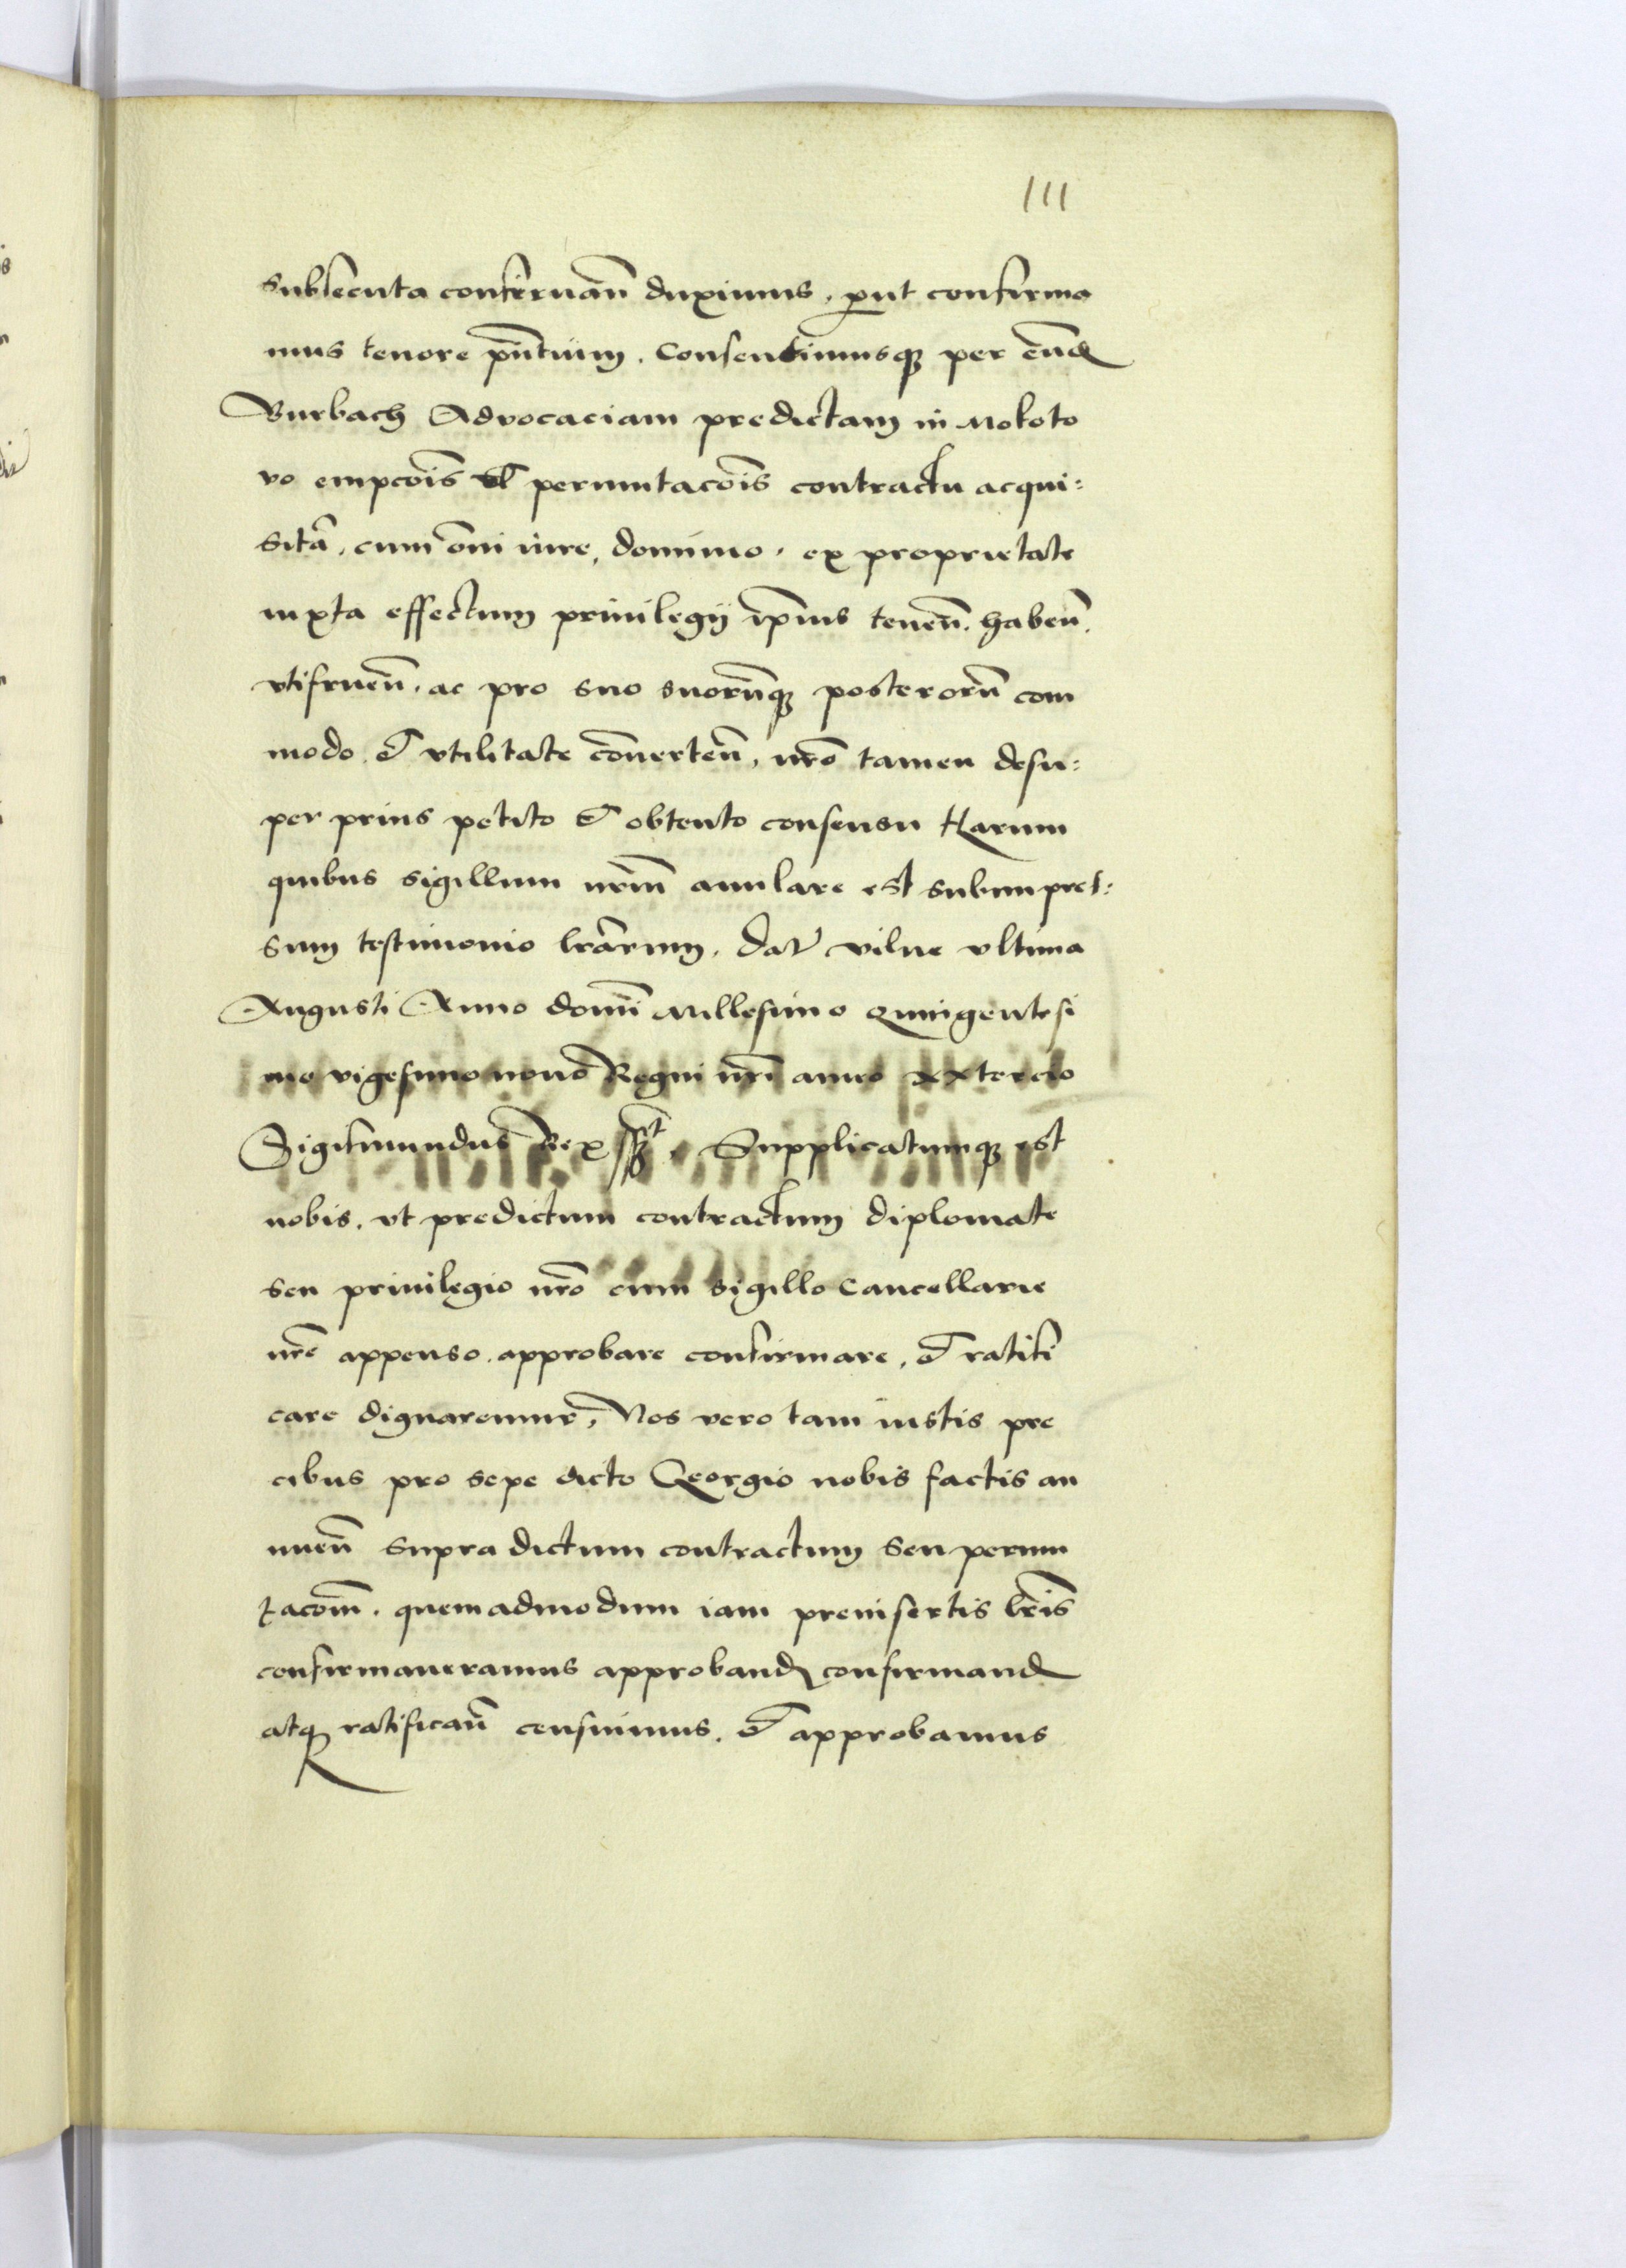 111
subsecuta conseruan̄ duximus, ꝓut confirma
mus tenore pn̄tium. Consentimusqꝫ per eund
Burbach Advocaciam predictam in Mokoto
vo empcōis vl̄ permutacōis contractu acqui:
sitā, cum om̄i iure, dominio, ex proprietate
iuxta effectum priuilegij ip̄ius tenen̄. haben̄.
vtifruen̄. ac pro suo suorūqꝫ posterorū com
modo et vtilitate cōuerten̄, nr̄o tamen desu:
per prius petito et obtento consensu Harum
quibus sigillum nr̄m anulare est subimpres:
sum testimonio lrārum. Dat̄ vilne vltima
Augusti Anno domī Millesimo Quingentesi
mo vigesimo nono Regni nr̄i anno xxtercio
Sigismundus Rex sꝫt. Supplicatumqꝫ est
nobis, vt predictum contractum diplomate
seu priuilegio nr̄o cum sigillo Cancellarie
nr̄e appenso approbare confirmare, et ratifi
care dignaremur, Nos vero tam iustis pre
cibus pro sepe dicto Georgio nobis factis an
nuen̄ supra dictum contractum seu permu
tacōm, quemadmodum iam preinsertis lr̄is
confirmaueramus approband confirmand
atqꝫ ratifican̄ censuimus, et approbamus